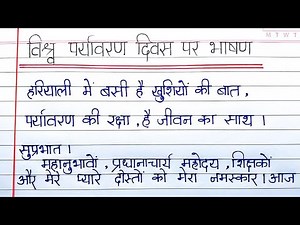 विश्व पर्यावरण दिवस पर भाषण
हरियाली में बसी है खुशियों की बात,
पर्यावरण की रक्षा, है जीवन का साथ।
सुप्रभात।
महानुभावों, प्रधानाचार्य महोदय, शिक्षकों
और मेरे प्यारे दोस्तों को मेरा नमस्कार। आज